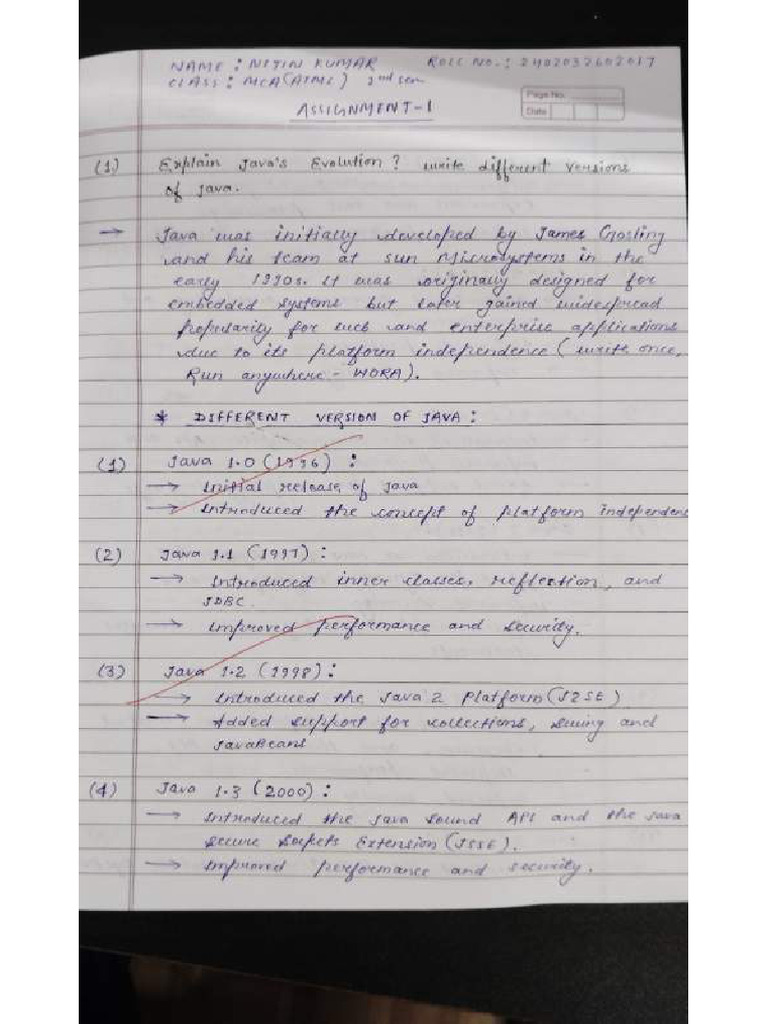 NAME : NITIN KUMAR ROLL NO. : 2402032602017
CLASS : MCA(AIML) 2nd sem
Page No.
Date
ASSIGNMENT-1
(1.) Explain Java's Evolution? write different versions
of Java.
→ Java was initially developed by James Gosling
and his team at sun Microsystems in the
early 1990s. it was originally designed for
embedded systems but later gained widespread
popularity for such and enterprise applications
due to its platform independence (write once,
Run anywhere - WORA).
* DIFFERENT VERSION OF JAVA :
(1) Java 1.0 (1996) :
→ Initial release of Java
→ Introduced the concept of platform independenc
(2) Java 1.1 (1997) :
→ Introduced inner classes, reflection, and
JDBC.
→ Improved performance and security.
(3) Java 1.2 (1998) :
→ Introduced the Java 2 Platform (J2SE)
→ Added support for collections, swing and
JavaBeans
(4) Java 1.3 (2000) :
→ Introduced the Java sound API and the Java
secure sockets Extension (JSSE).
→ Improved performance and security.